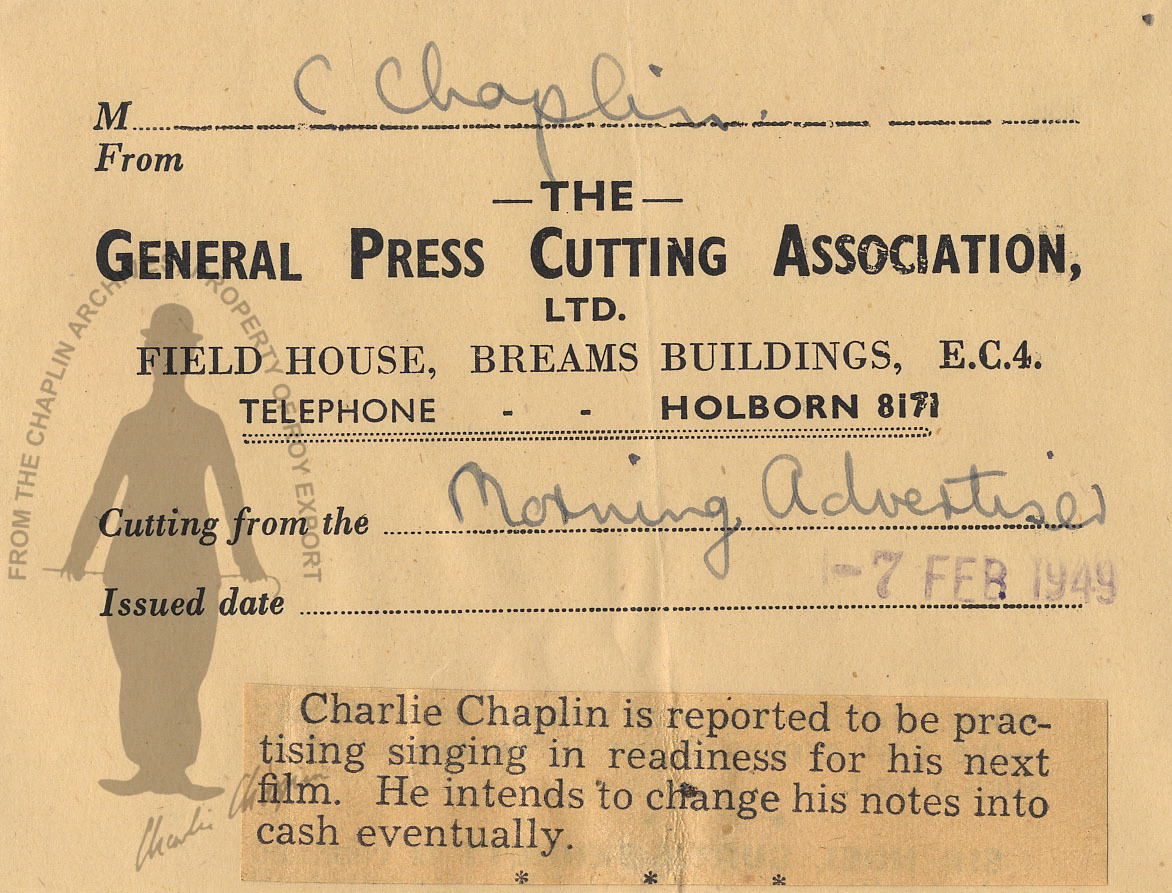 M C Chaplin.
From
—THE—
GENERAL PRESS CUTTING ASSOCIATION,
LTD.
FIELD HOUSE, BREAMS BUILDINGS, E.C.4.
TELEPHONE - - HOLBORN 8171
Cutting from the Morning Advertiser
Issued date -7 FEB 1949
Charlie Chaplin is reported to be prac-
tising singing in readiness for his next
film. He intends to change his notes into
cash eventually.
* * *
FROM THE CHAPLIN ARCHIVES PROPERTY OF ROY EXPORT
Charlie Chaplin